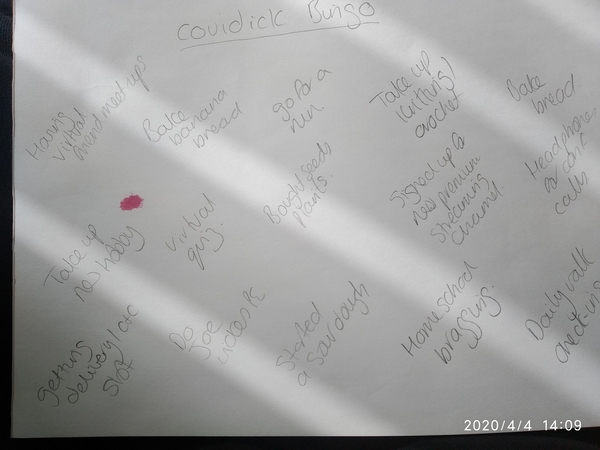 Covidick Bingo
Having
virtual
friend meet ups
Bake
banana
bread
go for a
run.
Take up
knitting/
crochet
Bake
bread
Take up
new hobby
virtual
quiz
Bought seeds
plants.
Signed up to
new premium
streaming
channel
Headphones
on conf
calls
getting
delivery/ctc
slot
Do
Joe
videos
Started
a sourdough
Home school
bragging.
Daily walk
check-ins
2020/4/4 14:09